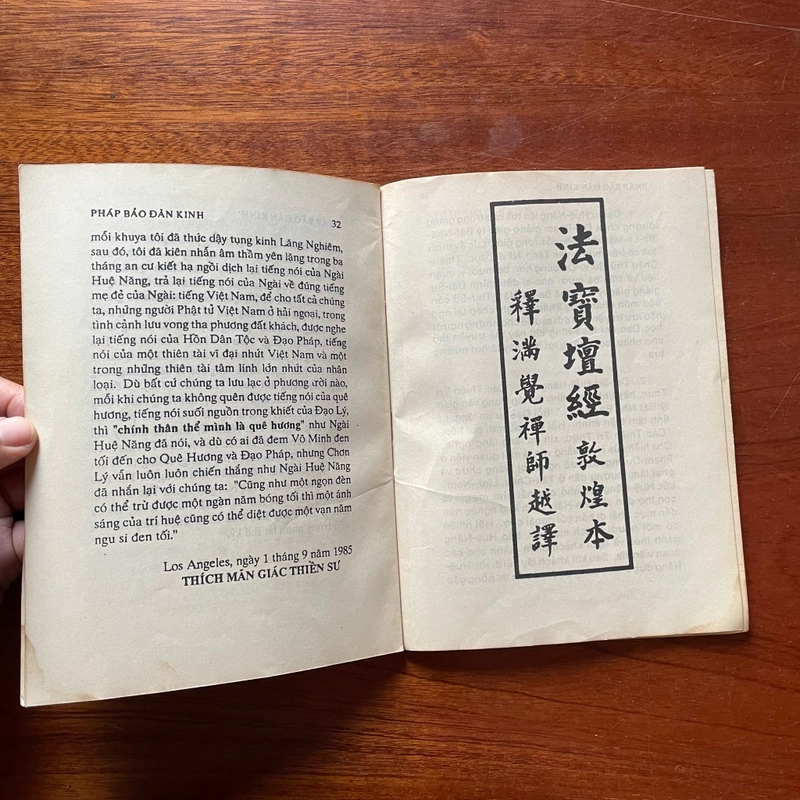 PHÁP BẢO ĐÀN KINH
32
mỗi khuya tôi đã thức dậy tụng kinh Lăng Nghiêm,
sau đó, tôi đã kiên nhẫn âm thầm yên lặng trong ba
tháng an cư kiết hạ ngồi dịch lại tiếng nói của Ngài
Huệ Năng, trả lại tiếng nói của Ngài về đúng tiếng
mẹ đẻ của Ngài: tiếng Việt Nam, để cho tất cả chúng
ta, những người Phật tử Việt Nam ở hải ngoại, trong
tình cảnh lưu vong tha phương đất khách, được nghe
lại tiếng nói của Hồn Dân Tộc và Đạo Pháp, tiếng
nói của một thiên tài vĩ đại nhứt Việt Nam và một
trong những thiên tài tâm linh lớn nhứt của nhân
loại. Dù bất cứ chúng ta lưu lạc ở phương rời nào,
mỗi khi chúng ta không quên được tiếng nói của quê
hương, tiếng nói suối nguồn trong khiết của Đạo Lý,
thì "chính thân thể mình là quê hương" như Ngài
Huệ Năng đã nói, và dù có ai đã đem Vô Minh đen
tối đến cho Quê Hương và Đạo Pháp, nhưng Chơn
Lý vẫn luôn luôn chiến thắng như Ngài Huệ Năng
đã nhắn lại với chúng ta: "Cũng như một ngọn đèn
có thể trừ được một ngàn năm bóng tối thì một ánh
sáng của trí huệ cũng có thể diệt được một vạn năm
ngu si đen tối."
Los Angeles, ngày 1 tháng 9 năm 1985
THÍCH MÃN GIÁC THIỀN SƯ
法寶壇經 敦煌本
釋滿覺禪師越譯